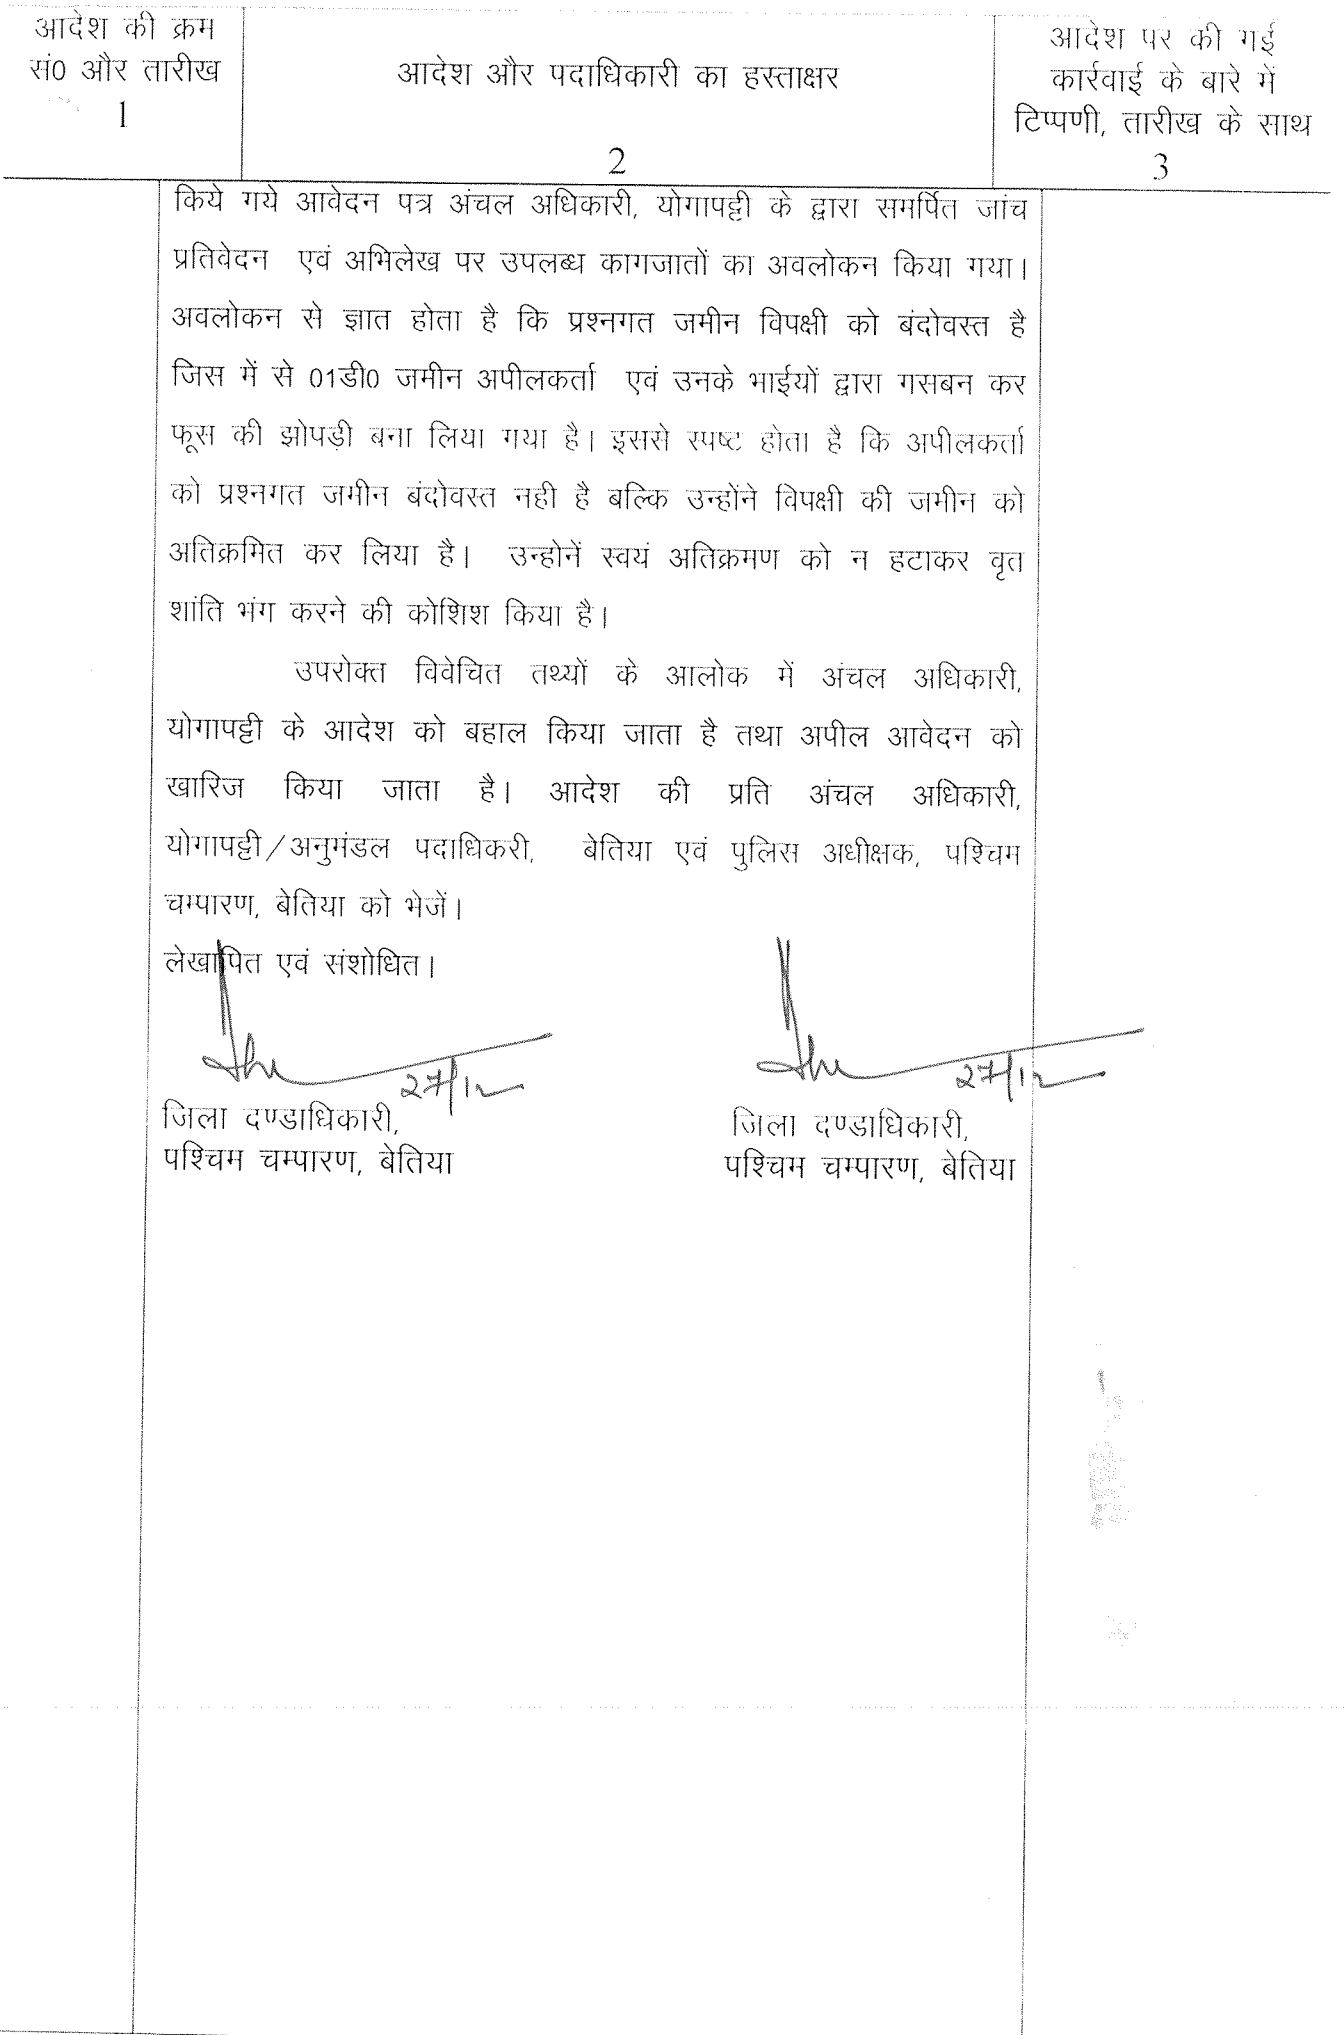 आदेश की क्रम
सं0 और तारीख
1
आदेश और पदाधिकारी का हस्ताक्षर
2
आदेश पर की गई
कार्रवाई के बारे में
टिप्पणी, तारीख के साथ
3
किये गये आवेदन पत्र अंचल अधिकारी, योगापट्टी के द्वारा समर्पित जांच
प्रतिवेदन एवं अभिलेख पर उपलब्ध कागजातों का अवलोकन किया गया।
अवलोकन से ज्ञात होता है कि प्रश्नगत जमीन विपक्षी को बंदोवस्त है
जिस में से 01डी0 जमीन अपीलकर्ता एवं उनके भाईयों द्वारा गसबन कर
फूस की झोपड़ी बना लिया गया है। इससे स्पष्ट होता है कि अपीलकर्ता
को प्रश्नगत जमीन बंदोवस्त नही है बल्कि उन्होंने विपक्षी की जमीन को
अतिक्रमित कर लिया है। उन्होनें स्वयं अतिक्रमण को न हटाकर वृत
शांति भंग करने की कोशिश किया है।
उपरोक्त विवेचित तथ्यों के आलोक में अंचल अधिकारी,
योगापट्टी के आदेश को बहाल किया जाता है तथा अपील आवेदन को
खारिज किया जाता है। आदेश की प्रति अंचल अधिकारी,
योगापट्टी/अनुमंडल पदाधिकरी, बेतिया एवं पुलिस अधीक्षक, पश्चिम
चम्पारण, बेतिया को भेजें।
लेखापित एवं संशोधित।
27/12
27/12
जिला दण्डाधिकारी,
पश्चिम चम्पारण, बेतिया
जिला दण्डाधिकारी,
पश्चिम चम्पारण, बेतिया